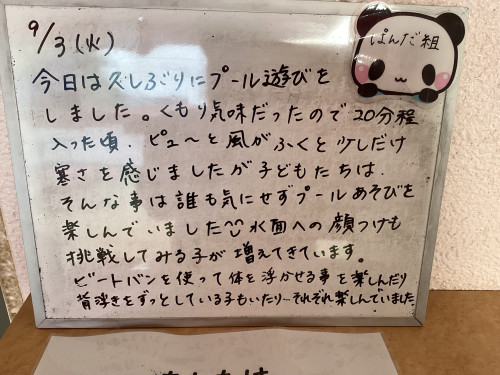 9/3(火)
ぱんだ組
今日は久しぶりにプール遊びを
しました。くもり気味だったので20分程
入った頃、ピューと風がふくと少しだけ
寒さを感じましたが子どもたちは、
そんな事は誰も気にせずプールあそびを
楽しんでいました 水面への顔つけも
挑戦してみる子が増えてきています。
ビートバンを使って体を浮かせる事を楽しんだり
背浮きをずっとしている子もいたり…それぞれ楽しんでいました